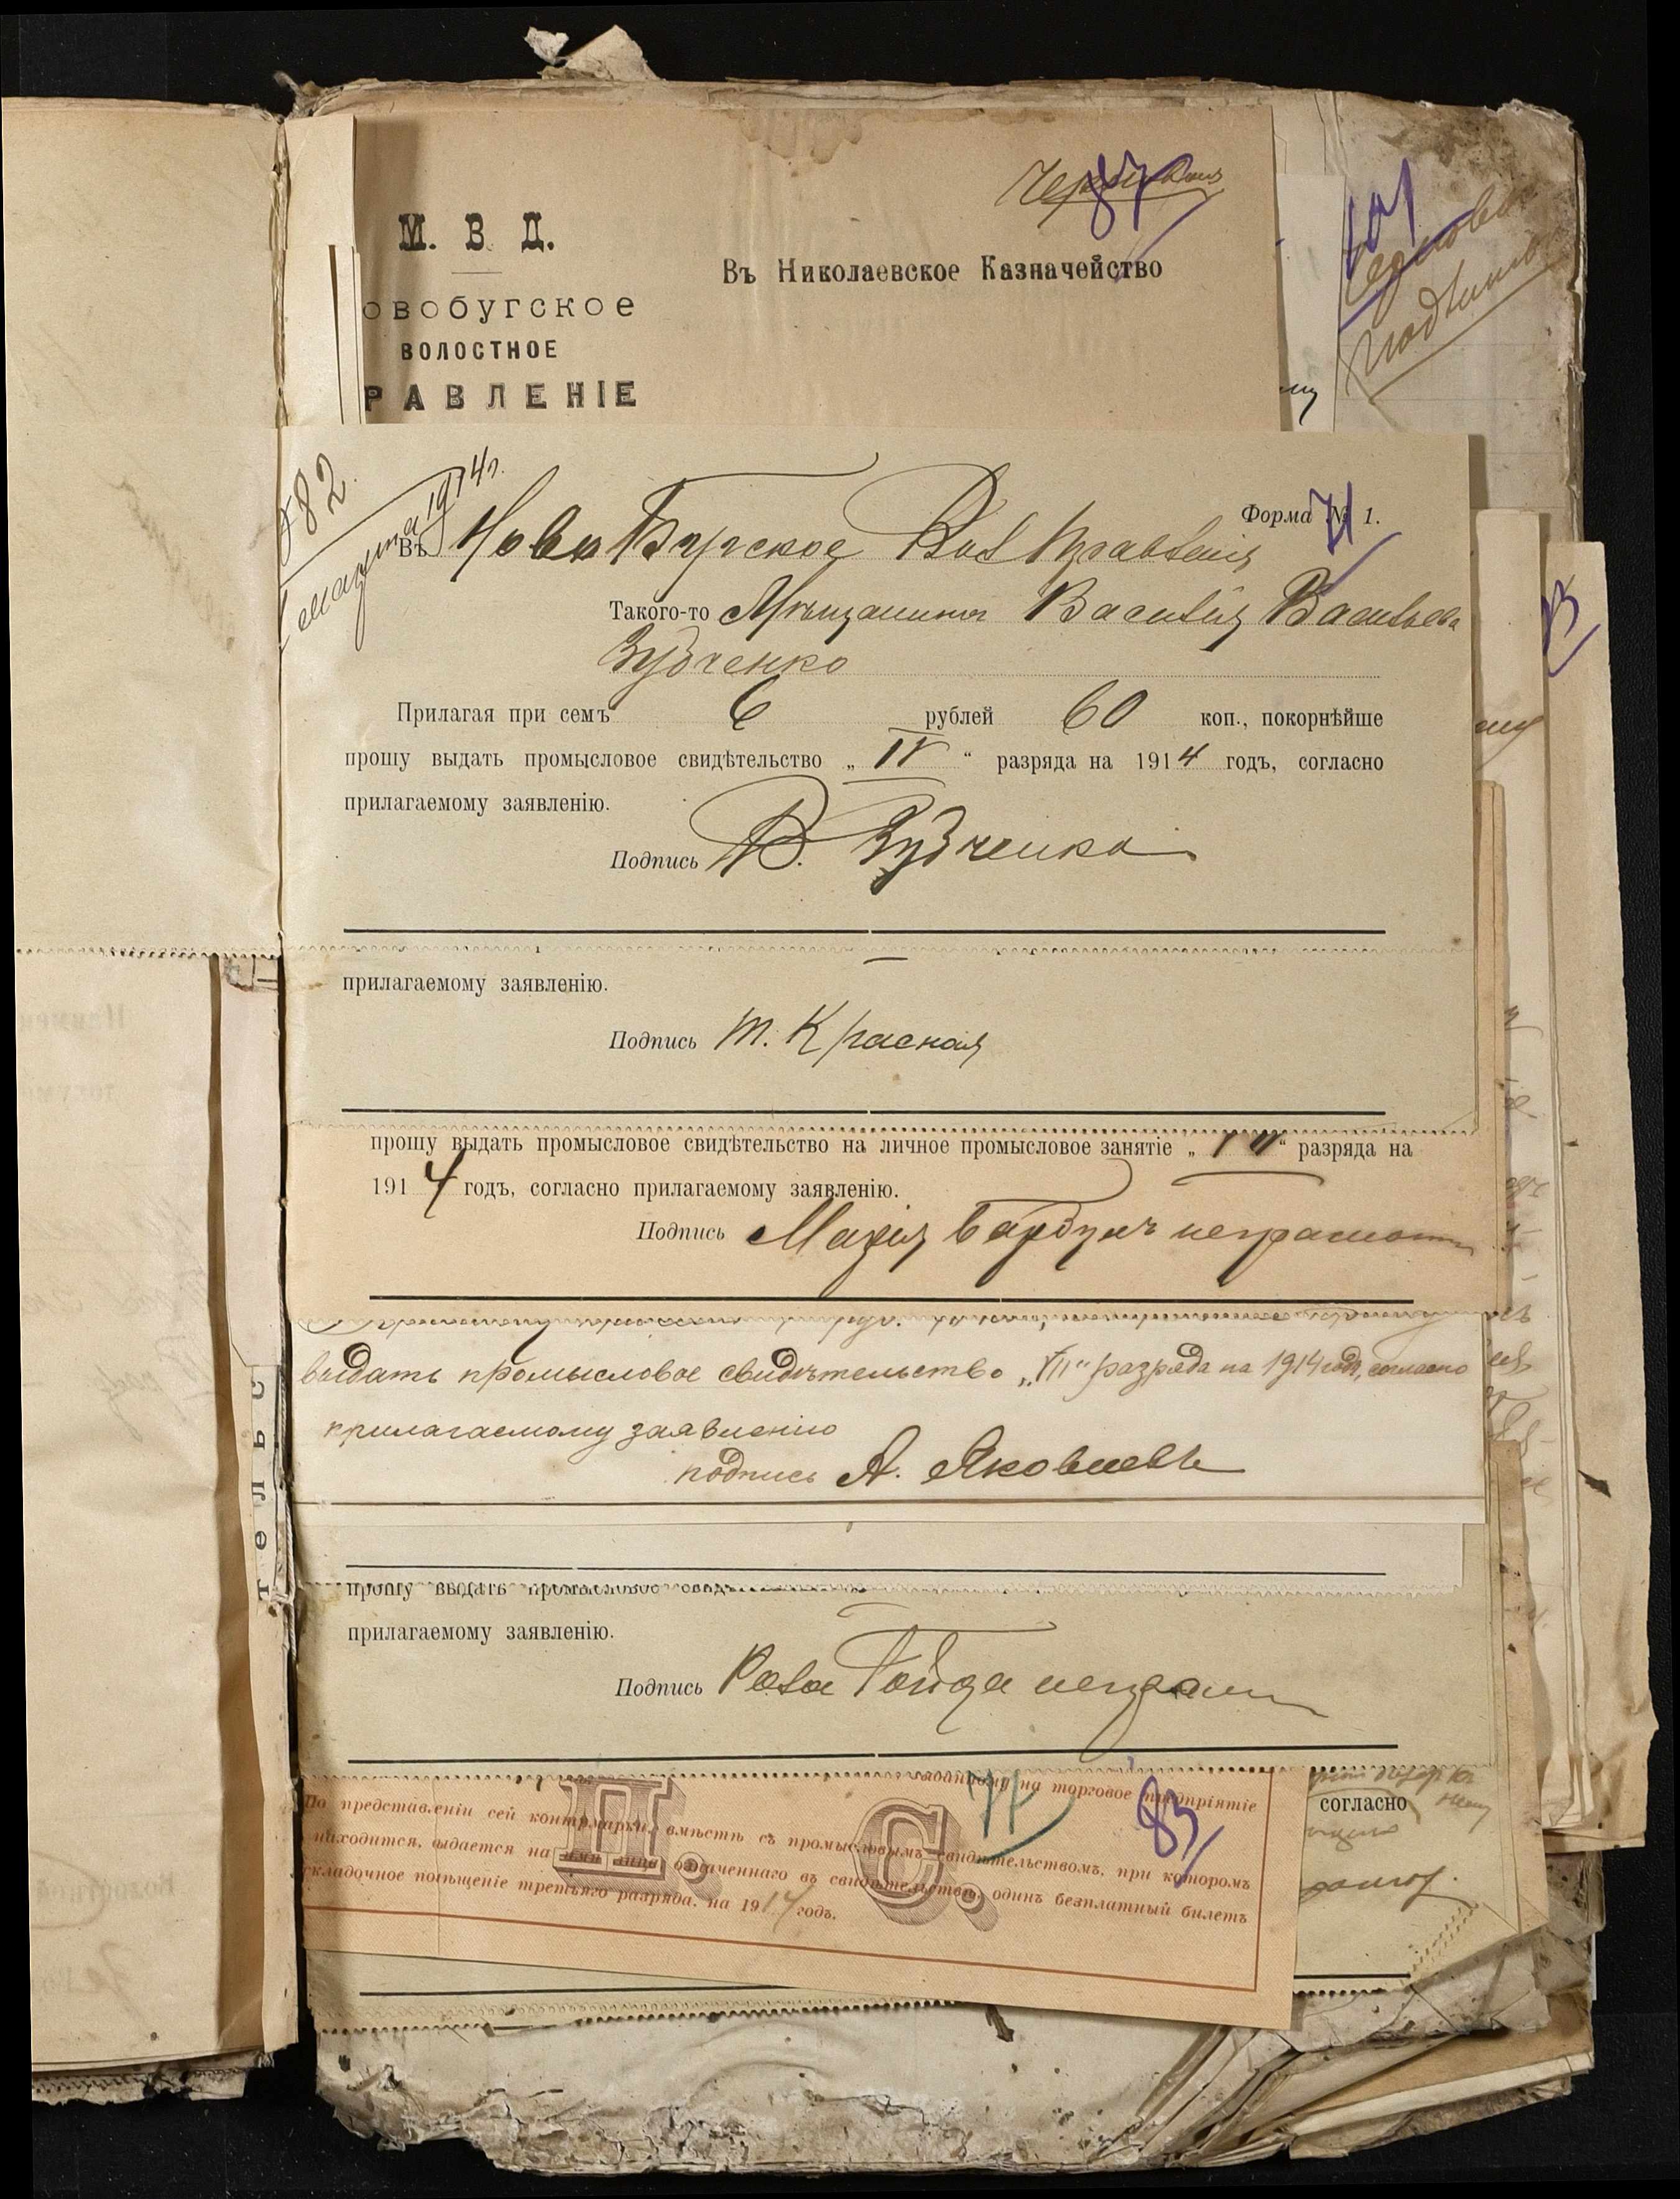 87
М. В. Д.
Въ Николаевское Казначейство
овобугское
ВОЛОСТНОЕ
РАВЛЕНІЕ
82
марта 1914 г.
Форма № 1.
71
Въ Ново Бугское Вол Правленія
Такого-то Мѣщанина Василія Васильева
Зубченко
Прилагая при семъ 6 рублей 60 коп., покорнѣйше
прошу выдать промысловое свидѣтельство „ IV “ разряда на 1914 годъ, согласно
прилагаемому заявленію.
Подпись В. Зубченко
прилагаемому заявленію.
Подпись М. Красная
прошу выдать промысловое свидѣтельство на личное промысловое занятіе „ “ разряда на
1914 годъ, согласно прилагаемому заявленію.
Подпись Марія
выдать промысловое свидѣтельство „VII“ разряда на 1914 годъ, согласно
прилагаемому заявленію
подпись А. Яковлевъ
тельс
прошу выдать промысловое
прилагаемому заявленію.
Подпись Роза
на торговое предпріятіе
83
По представленіи сей контрмарки, вмѣстѣ съ промысловымъ свидѣтельствомъ, при которомъ
находится, выдается на имя лица означеннаго въ свидѣтельствѣ, одинъ безплатный билетъ
складочное помѣщеніе третьяго разряда. на 1914 годъ.
П. С.
согласно